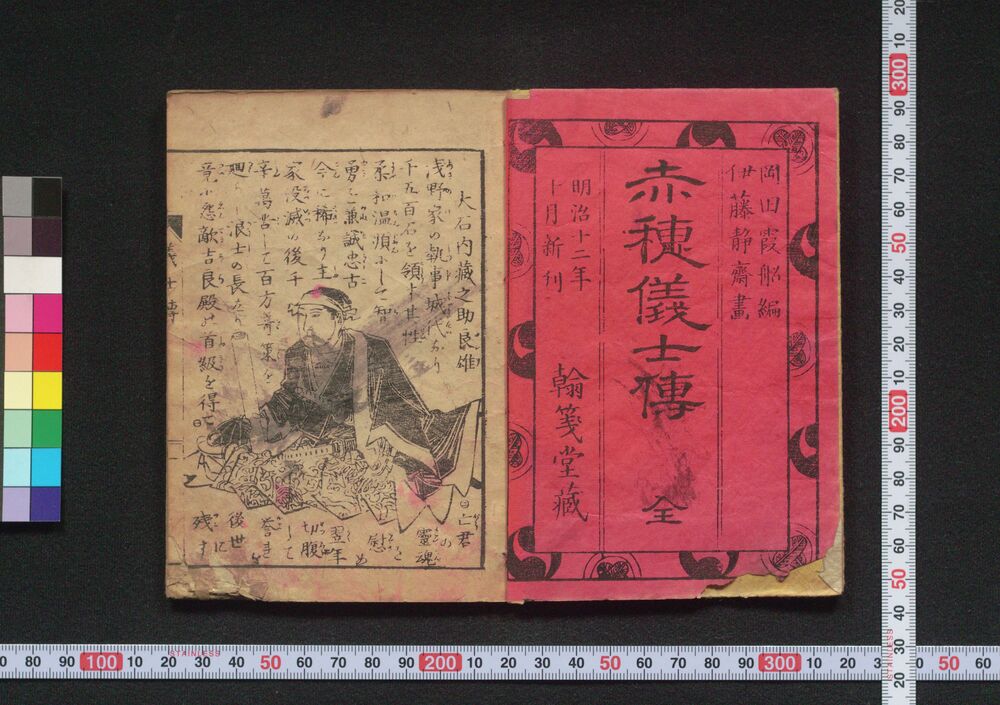 岡田霞船編
伊藤静齋畫
赤穂儀士傳 全
明治十二年
十月新刊
翰箋堂藏
大石内藏之助良雄
浅野家の執事城代なり
千五百石を領す其性
柔和温順にして智
勇を兼誠忠古
今に稀なり主
家没滅の後千
辛萬苦して百方
浪士の長
怨敵吉良殿の首級を得て
亡君の
靈魂を
慰め
翌年
切腹
して
誉を
後世に
残す
義士傳
STAINLESS
0 80 90 100 10 20 30 40 50 60 70 80 90 200 10 20 30 40 50 60 70 80 90 300 10 20 50 60
20 10 300 90 80 70 60 50 40 30 20 10 200 90 80 70 60 50 40 30 20
STAINLESS